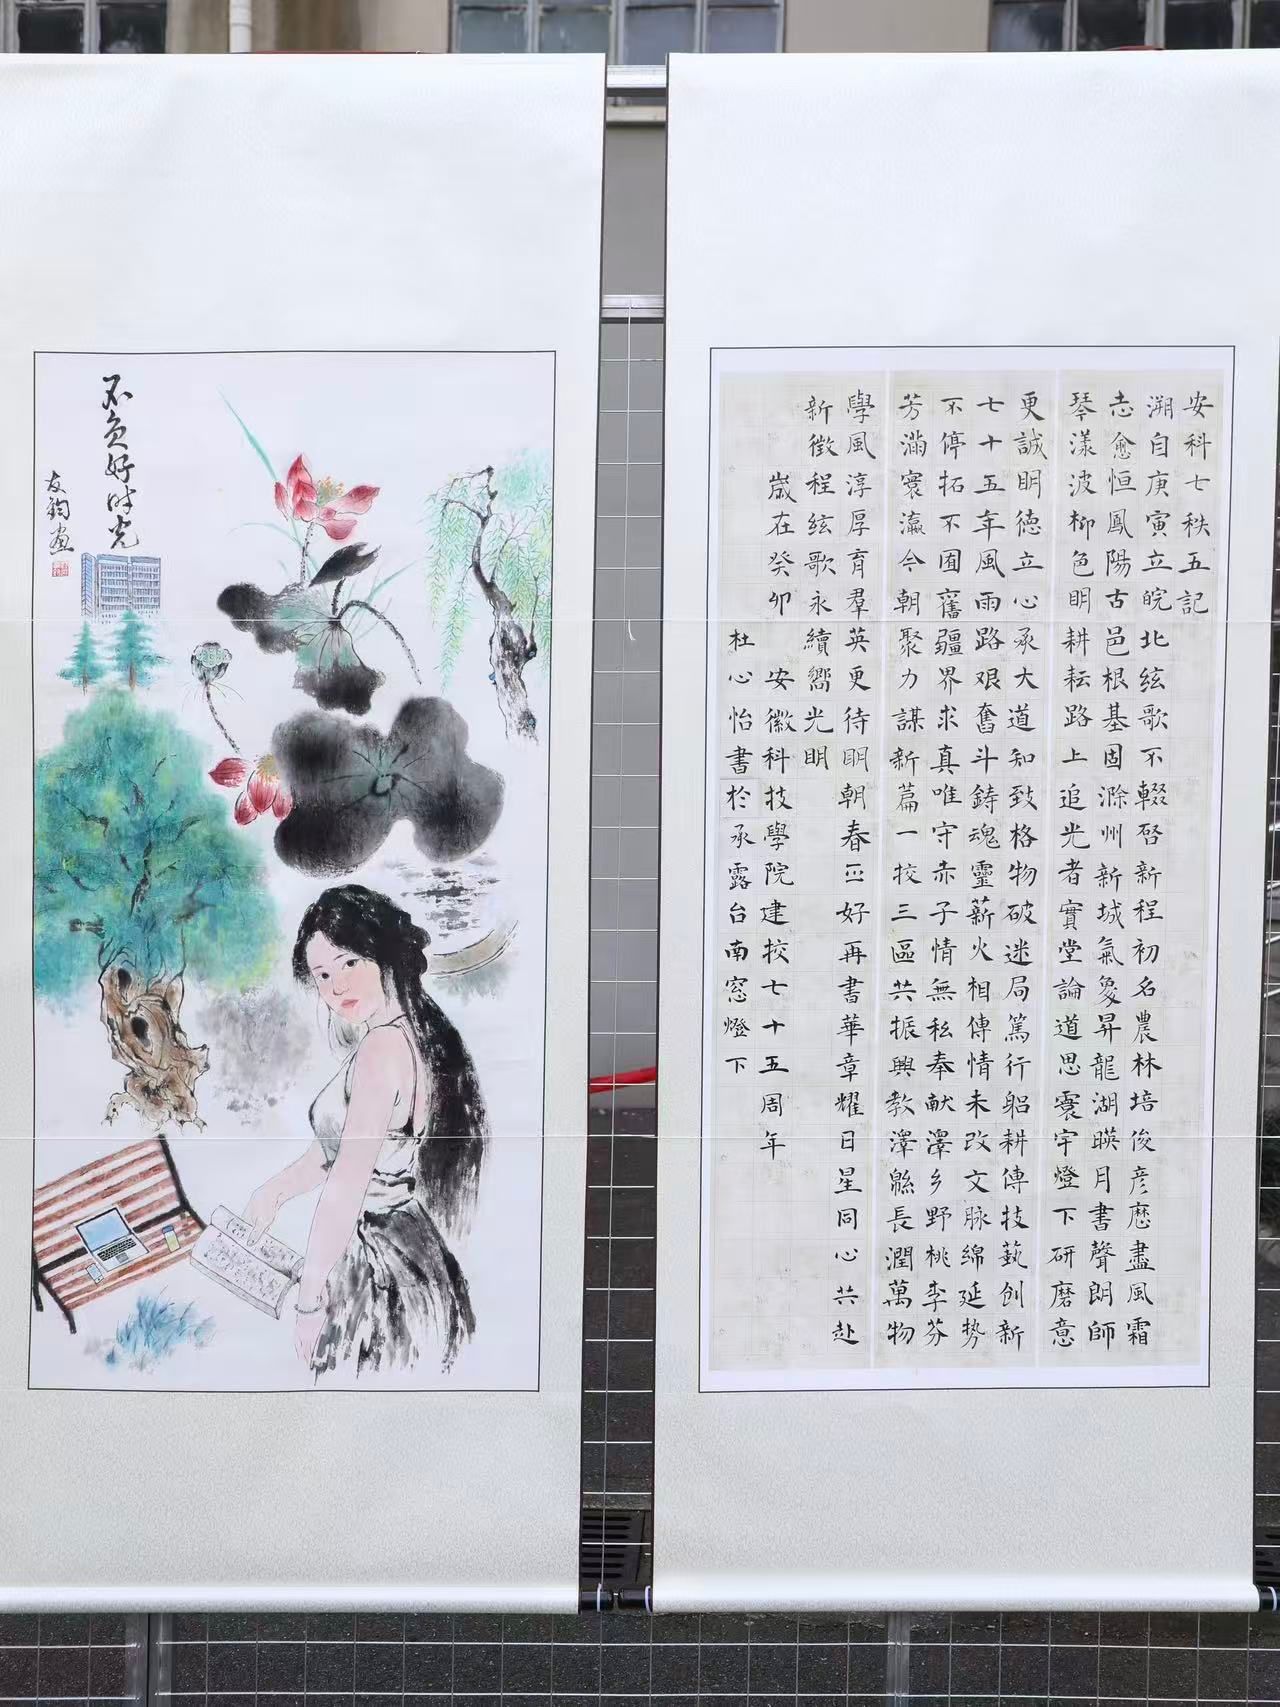 不負好时光
友鈞画
安科七秩五記
溯自庚寅立皖北絃歌不輟啓新程初名農林培俊彦歷盡風霜
志愈恒鳳陽古邑根基固滁州新城氣象昇龍湖暎月書聲朗師
琴漾波柳色明耕耘路上追光者實堂論道思寰宇燈下研磨意
更誠明德立心承大道知致格物破迷局篤行躬耕傳技藝創新
七十五年風雨路艰奮斗鑄魂靈薪火相傳情未改文脉綿延势
不停拓不囿舊疆界求真唯守赤子情無私奉献澤乡野桃李芬
芳滿寰瀛今朝聚力謀新篇一校三區共振興教澤緜長潤萬物
學風淳厚育羣英更待明朝春正好再書華章耀日星同心共赴
新徵程絃歌永續嚮光明
歲在癸卯安徽科技學院建校七十五周年
杜心怡書於承露台南窓燈下